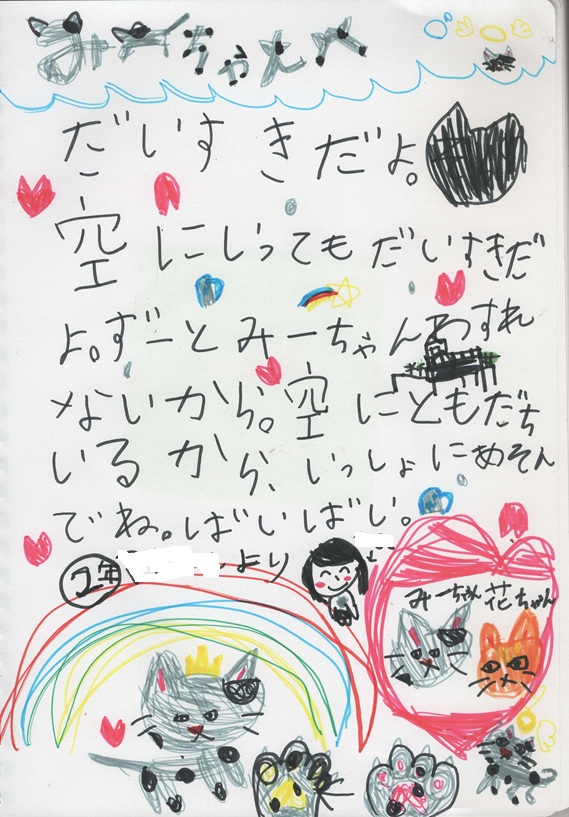 みーちゃんへ
だいすきだよ。
空にいってもだいすきだ
よ。ずーとみーちゃんわすれ
ないから。空にともだち
いるから、いっしょにあそん
でね。ばいばい。
2年 より
みーちゃん 花ちゃん